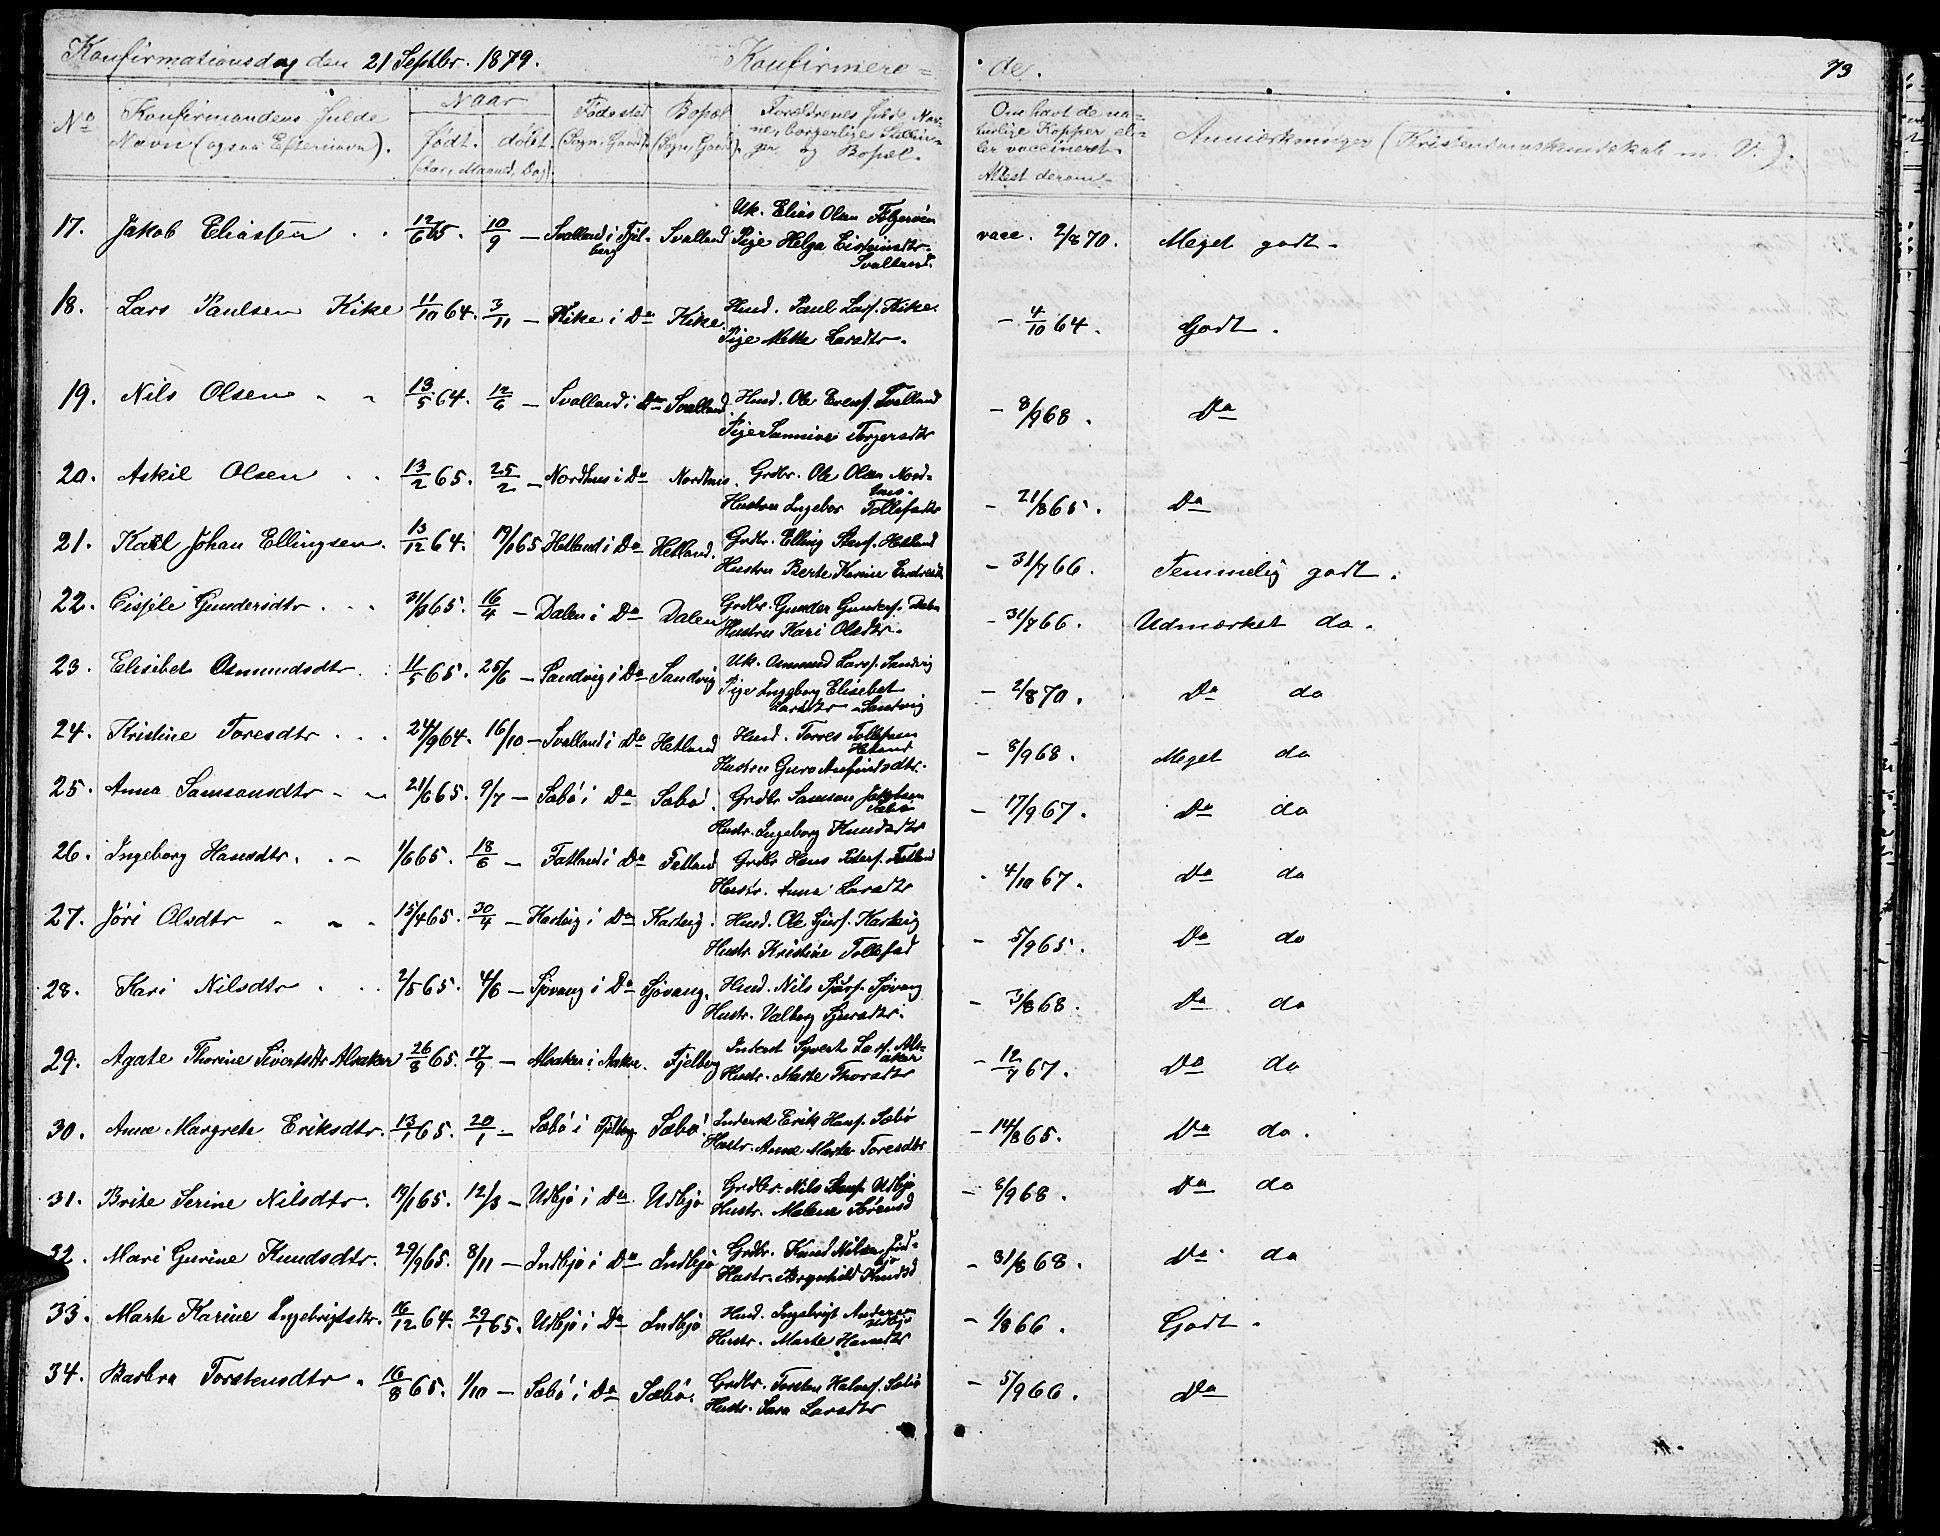 Konfirmationsdag den 21 Septbr. 1879. Konfirmere= de. 73
No Konfirmandens fulde Navn (ogsaa Efternavn). Naar født. døbt. (Aar, Maaned, Dag). Fødested (Sogn, Gaard). Bopæl (Sogn, Gaard). Forældrenes fulde Navne, borgerlige Stillinger og Bopæl. Om havt de naturlige Kopper eller vaccineret. Attest derom. Anmærkninger (Kristendomskundskab m. V.).
17. Jakob Eliassen 12/6 65. 10/9 — Svalland i Fjelberg Svalland Uk. Elias Olsen
Pige Helga Svalland. vacc. 2/8 70. Meget godt.
18. Lars Paulsen Kike 11/10 64. 3/11 — Kike i Do Kike Husd. Paul Lars. Kike.
Pige Mette Larsdtr. — 4/10 64. Godt.
19. Nils Olsen 13/5 64. 12/6 — Svalland i Do Svalland Husd. Ole
Pige Torgersdtr — 8/9 68. Do
20. Askil Olsen 13/2 65. 25/2 — Nordhus i Do Nordhus. Grdbr. Ole Olsen Nordhus.
Hustru Ingebor Tollefsdtr — 21/8 65. Do
21. Karl Johan Ellingsen. 13/12 64. 19/1 65 Hetland i Do Hetland. Grdbr. Elling Hetland
Hustru Berte Karine — 31/7 66. Temmelig godt.
22. Gundersdtr 31/3 65. 16/4 — Dalen i Do Dalen Grdbr. Gunder Gunders. Dalen
Hustru Kari Olsdtr. — 31/7 66. Udmærket do.
23. Elisibet Osmundsdtr 11/5 65. 25/6 — Sandvig i Do Sandvig Uk. Osmund Lars. Sandvig
Pige Ingeborg Elisebet
Larsdtr Sandvig — 2/8 70. Do do
24. Kristine Toresdtr 24/9 64. 16/10 — Svalland i Do Hetland Husd. Torres Tollefsen
Hetland
Hustru Guro — 8/9 68. Meget do
25. Anna Samsonsdtr 21/6 65. 9/7 — Sæbø i Do Sæbø. Grdbr Samson Jakobsen
Sæbø
Hustr. Ingeborg Knudsdtr — 17/9 67. Do do
26. Ingeborg Hansdtr. 1/6 65. 18/6 — Fatland i Do Fatland Grdbr Hans Peders. Fatland
Hustr. Anna Larsdtr - 4/10 67. Do do
27. Jøri Olsdtr 15/4 65. 30/4 — Karlvig i Do Karlvig. Husd. Ole Sjurs. Karlvig
Hustr. Kristine Tollefsd — 5/9 65. Do do
28. Kari Nilsdtr 2/5 65. 4/6 — Sjøvang i Do Sjøvang. Husd. Nils Sjøvang
Hustr. Valborg Sjursdtr. — 3/8 68. Do do
29. Agate Thorine Sivertsdtr Alsaker 26/8 65. 17/9 — Alsaker i Fjelberg Inderst Syvert Lars. Alsaker
Hustr. Marte Thorsdtr — 12/7 67. Do do
30. Anne Margrete Eriksdtr. 13/1 65. 20/1 — Sæbø i Fjelberg Sæbø. Inderst Erik Hans. Sæbø
Hustr. Anne Marte Toresdtr — 14/8 65. Do do.
31. Brite Serine Nilsdtr. 19/1 65. 12/3 — Udbjø i Do Udbjø Grdbr. Nils Udbjø
Hustr. Malene Sørensd — 8/9 68. Do do
32. Mari Gurine Knudsdtr. 29/9 65. 8/11 — Indbjø i Do Indbjø Grdbr. Knud Nilsen Indbjø
Hustr. Brynhild Knudsd — 31/8 68. Do do
33. Marte Karine Ingebrigtsdtr. 16/12 64. 29/1 65. Udbjø i Do Indbjø Husd. Ingebrigt Andersen
Udbjø
Hustr. Marte Hansdtr — 1/8 66. Godt.
34. Barbra Torstensdtr 16/8 65. 1/10 — Sæbø i Do Sæbø. Grdbr. Torsten Halvors. Sæbø
Hustr. Sara Larsdtr — 5/9 66. Do